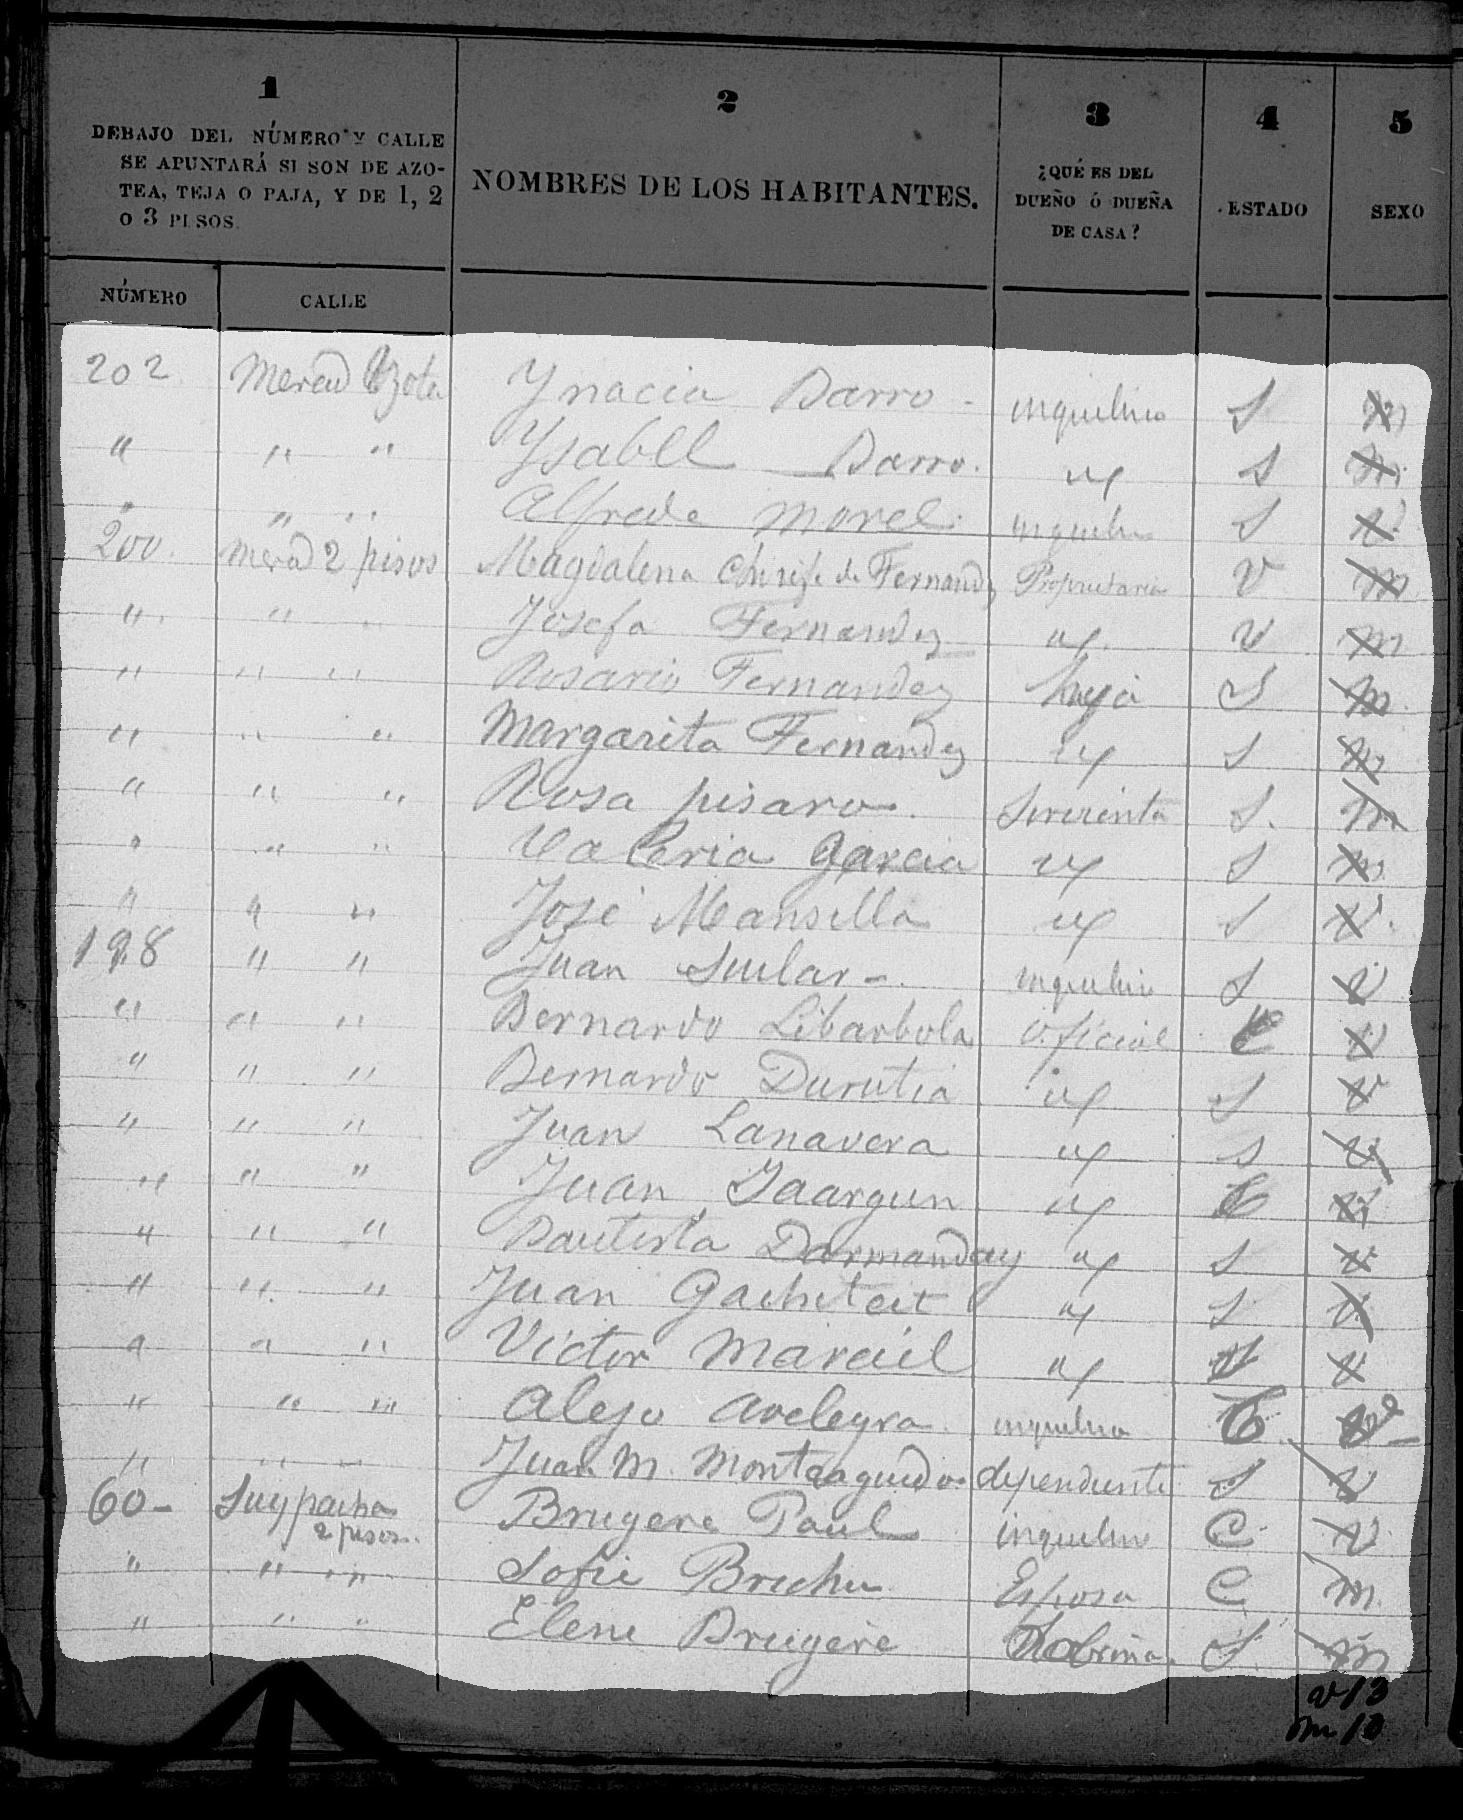 1 2 3 4 5
DEBAJO DEL NÚMERO Y CALLE
SE APUNTARÁ SI SON DE AZO-
TEA, TEJA O PAJA, Y DE 1, 2
O 3 PISOS.
NOMBRES DE LOS HABITANTES.
¿QUÉ ES DEL
DUEÑO Ó DUEÑA
DE CASA?
ESTADO
SEXO
NÚMERO CALLE
202 Ynacia Barro - inquilino S m
" " " Ysabell Barro. S m
" " " Alfrede Morel S V
200. 2 pisos Magdalena de Fernandz Propietaria V m
" " " Josefa Fernandez V m
" " " Rosario Fernandez hija S m
" " " Margarita Fernandez S m
" " " Rosa pisaro. Sirvienta S. m
" " " Valeria Garcia S m
" " " José Mansilla S V.
198 " " Juan S V
" " " Bernardo Libarbola Oficial C V
" " " Bernardo Durutia S V
" " " Juan Lanavera S V
" " " Juan C V
" " " Bautista Darmanday S V
" " " Juan Gachiteit S V
" " " Victor Marcil S V
" " " Alejo Aveleyra inquilino C V
" " " Juan M. Monteagudo dependiente S V
60- Suypacha 2 pisos. Brugere Paul inquilino C V.
" " " Sofie Esposa C m.
" " " Elene Brugere Sobrina. S. m
v 13
m 10